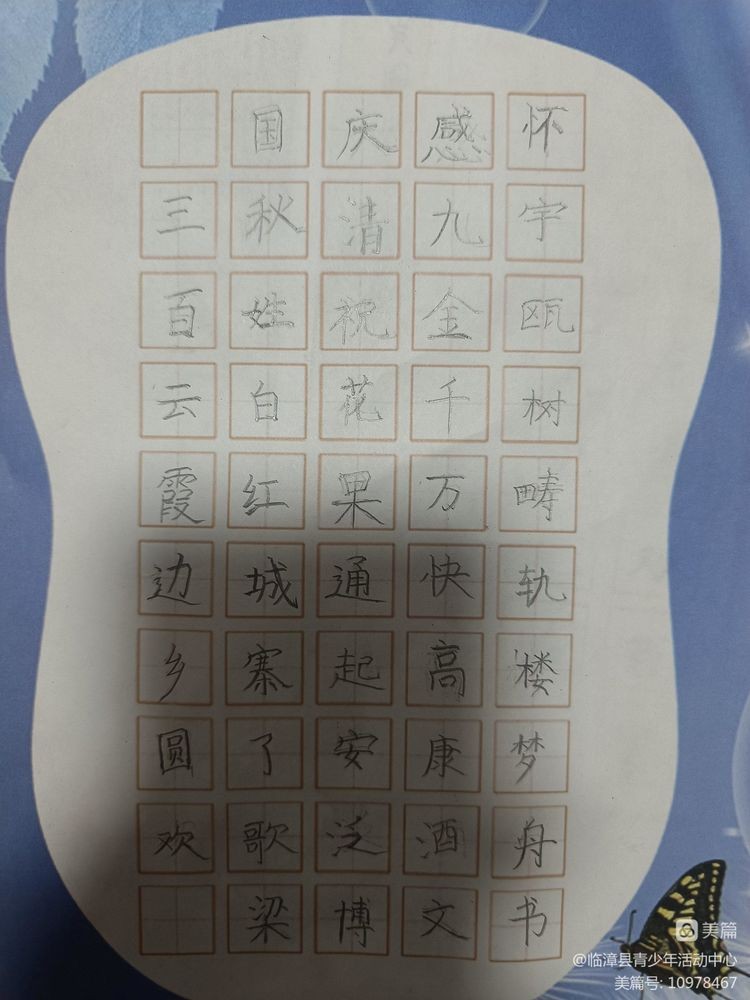 国庆感怀
三秋清九宇
百姓祝金瓯
云白花千树
霞红果万畴
边城通快轨
乡寨起高楼
圆了安康梦
欢歌泛酒舟
梁博文书
美篇
@临漳县青少年活动中心
美篇号: 10978467